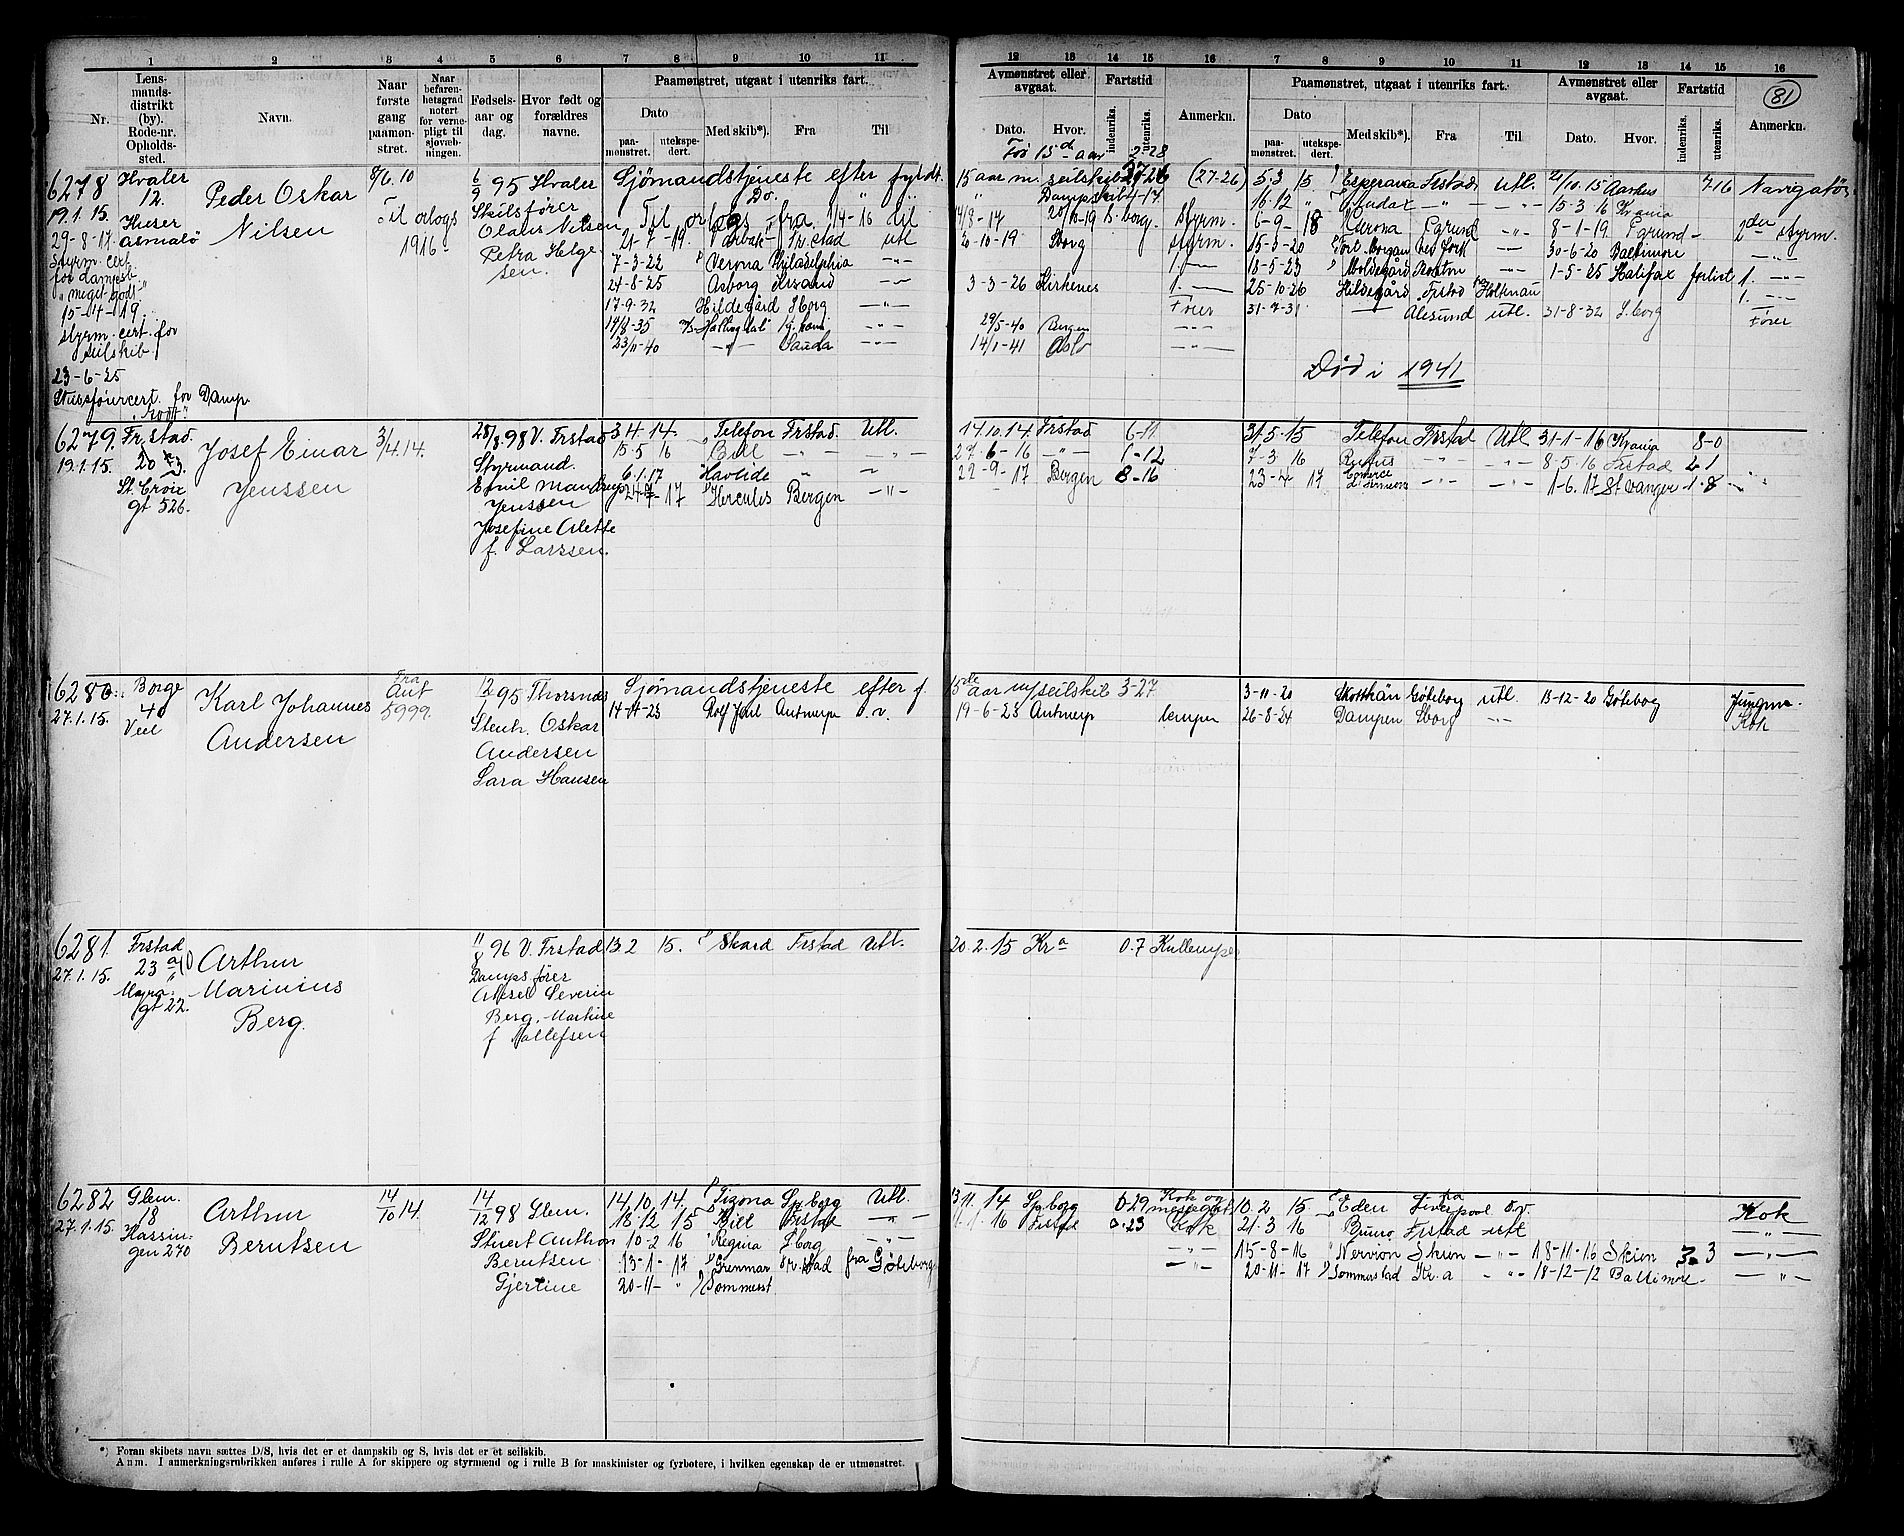 1 2 3 4 5 6 7 8 9 10 11
Nr.
Lens-
mands-
distrikt
(by).
Rode-nr.
Opholds-
sted.
Navn.
Naar
første
gang
paamøn-
stret.
Naar
befaren-
hetsgrad
notert
for verne-
pligt til
sjøvæb-
ningen.
Fødsels-
aar og
dag.
Hvor født og
forældres
navne.
Paamønstret, utgaat i utenriks fart.
Dato
paa-
mønstret.
utekspe-
dert.
Med skib*).
Fra
Til
6278
19.1.15.
29-8-17.
Hvaler
12.
Huser
Asmalø
Styrm. cert.
for dampsk.
"meget godt"
15-4-19.
Styrm.-cert. for
seilskib.
23-6-25
for Damp
Peder Oskar
Nilsen
8/6.10
Til orlogs
1916-
6/9 95 Hvaler
Skibsfører
Olaus Nilsen
Petra Helge
sen.
Sjømandstjeneste efter fyldt.
Do.
Til orlogs fra 1/4-16 til
21-7-19. Fr.stad utl
7-3-22 Verona Philadelphia -"-
24-8-25 Asborg
17-9-32 Hildegård Sborg -"-
14/8-35 -"-
23/11-40 -"- Sauda -"-
6279.
19.1.15.
Fr.stad.
20
St. Croix
gt 526.
Josef Einar
Jenssen
3/4.14.
28/8.98 V. Frstad
Styrmand.
Emil
Jenssen
Josefine Alette
f. Larssen.
3 4-14. Telefon Frstad. Utl.
15-5 16 -"- -"-
6.1.17 Havlide "
17 Hercules Bergen -"-
6280.
27.1.15.
Borge
40
Karl Johannes
Andersen
Fra
Ant
5999.
95 Thorsnæs
Stenh. Oskar
Andersen
Sara Hansen
Sjømandstjeneste efter f.
Rolf Jarl Antwerp o.v.
6281.
27.1.15.
Frstad
23
gt 22.
Arthur
Marinius
Berg.
11/8 96 V. Frstad
Dampsfører
Aksel Severin
Berg. Martine
f
13 2 15. Skard Frstad Utl.
6282
27.1.15.
Glem.
18
Hassin-
gen 270
Arthur
Berntsen
14/10 14.
14/12 98 Glem.
Stuert Anthon
Berntsen
Gjertine
14.10.14. Tizona Utl.
18.12 15 Bill Frstad -"-
10-2 16 Regina Sborg -"-
13-1-17 Grenmar Fr.stad fra Gøteborg
20-11- "
*) Foran skibets navn sættes D/S, hvis det er et dampskib og S, hvis det er et seilskib.
Anm. I anmerkningsrubrikken anføres i rulle A for skippere og styrmænd og i rulle B for maskinister og fyrbøtere, i hvilken egenskap de er utmønstret.
12 13 14 15 16 7 8 9 10 11 12 13 14 15 16
81
Avmønstret eller
avgaat.
Dato.
Hvor.
Fartstid
indenriks.
utenriks.
Anmerkn.
Paamønstret, utgaat i utenriks fart.
Dato
paa-
mønstret.
utekspe-
dert.
Med skib*).
Fra
Til
Avmønstret eller
avgaat.
Dato.
Hvor.
Fartstid
indenriks.
utenriks.
Anmerkn.
Før 15de aar 2-28
15 aar m. seilskib 27-26 (27-26) 5.3 15 Esperanca Frstad Utl. 21/10.15 Aarhus 7.16 Navigatør
" Dampskib 4-17. 16.12 " -"- " 15-3 16 Krania
14/8-17 20/10-19 Styrm. 6-9-18 Verona Egrund -"- 8-1-19. Egrund - 2den styrm.
20-10-19 Sborg styrm. 15-3-20 30-6-20 Baltimore -"-
18-5-23 Boston -"- 1-5-25 Halifax forlist 1. -"-
3-3-26 Kirkenes 1. 25-10-26 Hildegård Frstad Holtenau 1. -"-
Fører 31-7-31 Alesund utl. 31-8-32 S.borg Fører
29/5-40 Bergen -"-
14/1-41 Oslo -"-
Død i 1941
14.10.14. Frstad 6-11 31.5-15 Telefon Frstad Utl 31-1-16 Krania 8-0
27.6-16 -"- 1-12 7-3 16 Rufus -"- -"- 8-5.16 Frstad 2 1
22-9-17 Bergen 8-16 23-4 17 -"- -"- 1-6.17 Stvanger 1-8
15de aar m/seilskib 3-27. 3-11-20 Gøteborg utl. 13-12-20 Gøteborg Jungm.
19-6-23 Antwerp 26-8-24 Dampen Sborg -"- Kok
20.2.15 Kra 0.7 Kullemper
13.11.14 Spborg 0.29 Kok og 10.2 15 Eden Liverpool o.v. Kok
1.16 Frstad 0.23 Kok 21.3 16 Bruno Frstad utl -"-
-"- 15-8-16 Nervion Skien -"- 18-11-16 Skien 3 3 -"-
-"- 20-11-17 Sommerstad Kr.a -"- 18-12-12 Baltimore. -"-